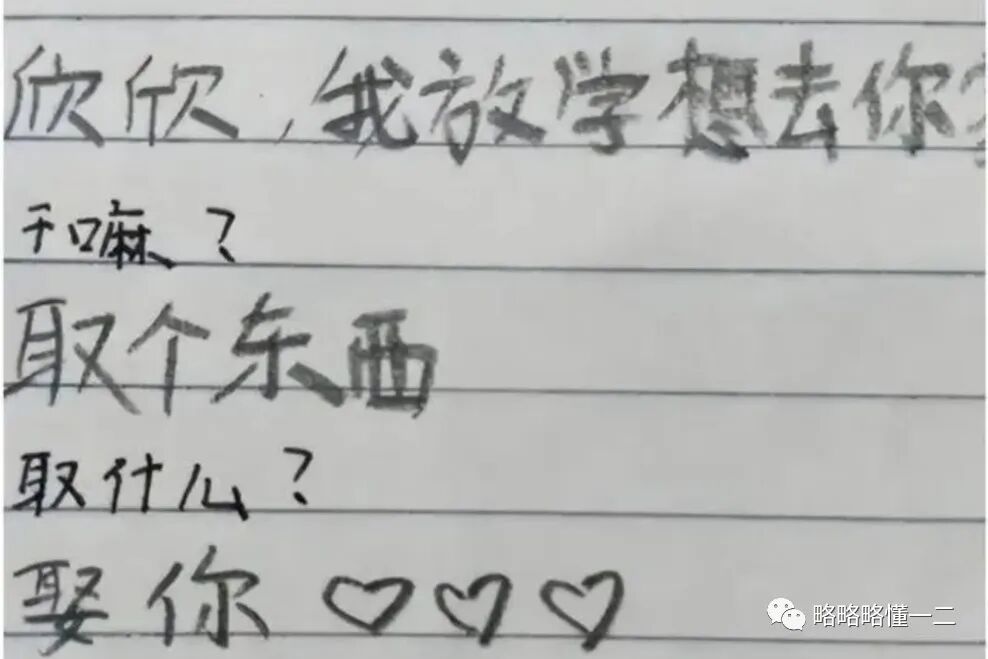 欣欣，我放学想去你
干嘛？
取个东西
取什么？
娶你♡♡♡
略略略懂一二